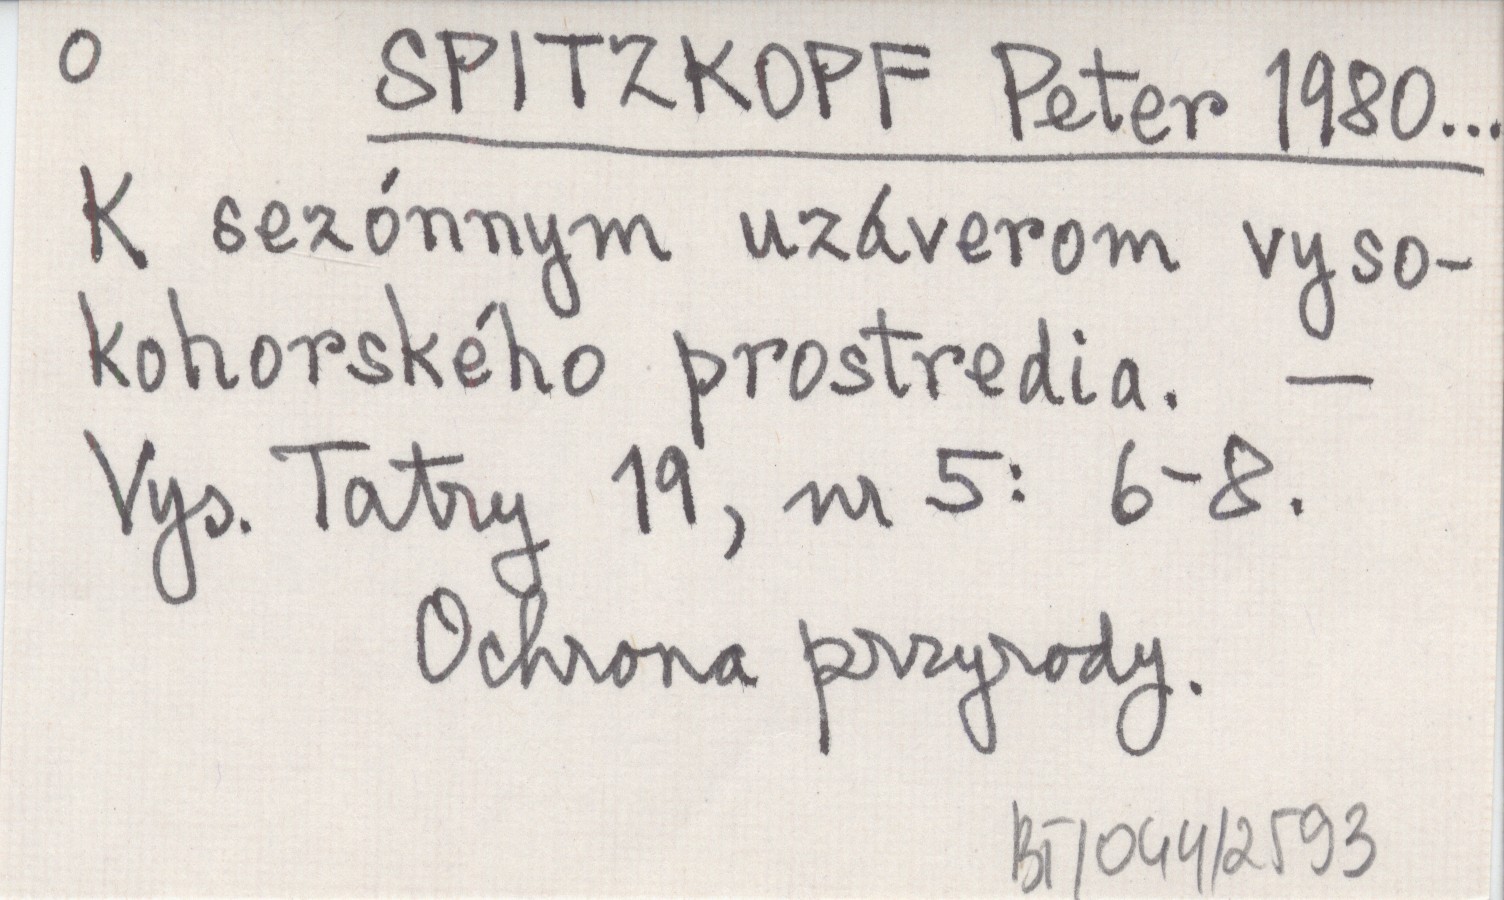 O SPITZKOPF Peter 1980...
K sezónnym uzáverom vyso-
kohorského prostredia. —
Vys. Tatry 19, nr 5: 6-8.
Ochrona przyrody.
BT/044/2593